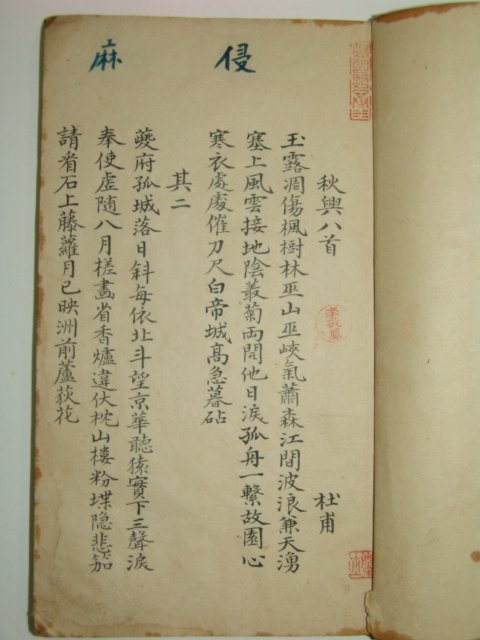 侵　麻
秋興八首
杜甫
玉露凋傷楓樹林巫山巫峽氣蕭森江間波浪兼天湧
塞上風雲接地陰叢菊兩開他日淚孤舟一繫故園心
寒衣處處催刀尺白帝城高急暮砧
其二
夔府孤城落日斜每依北斗望京華聽猿實下三聲淚
奉使虛隨八月槎畫省香爐違伏枕山樓粉堞隐悲笳
請看石上藤蘿月已映洲前蘆荻花